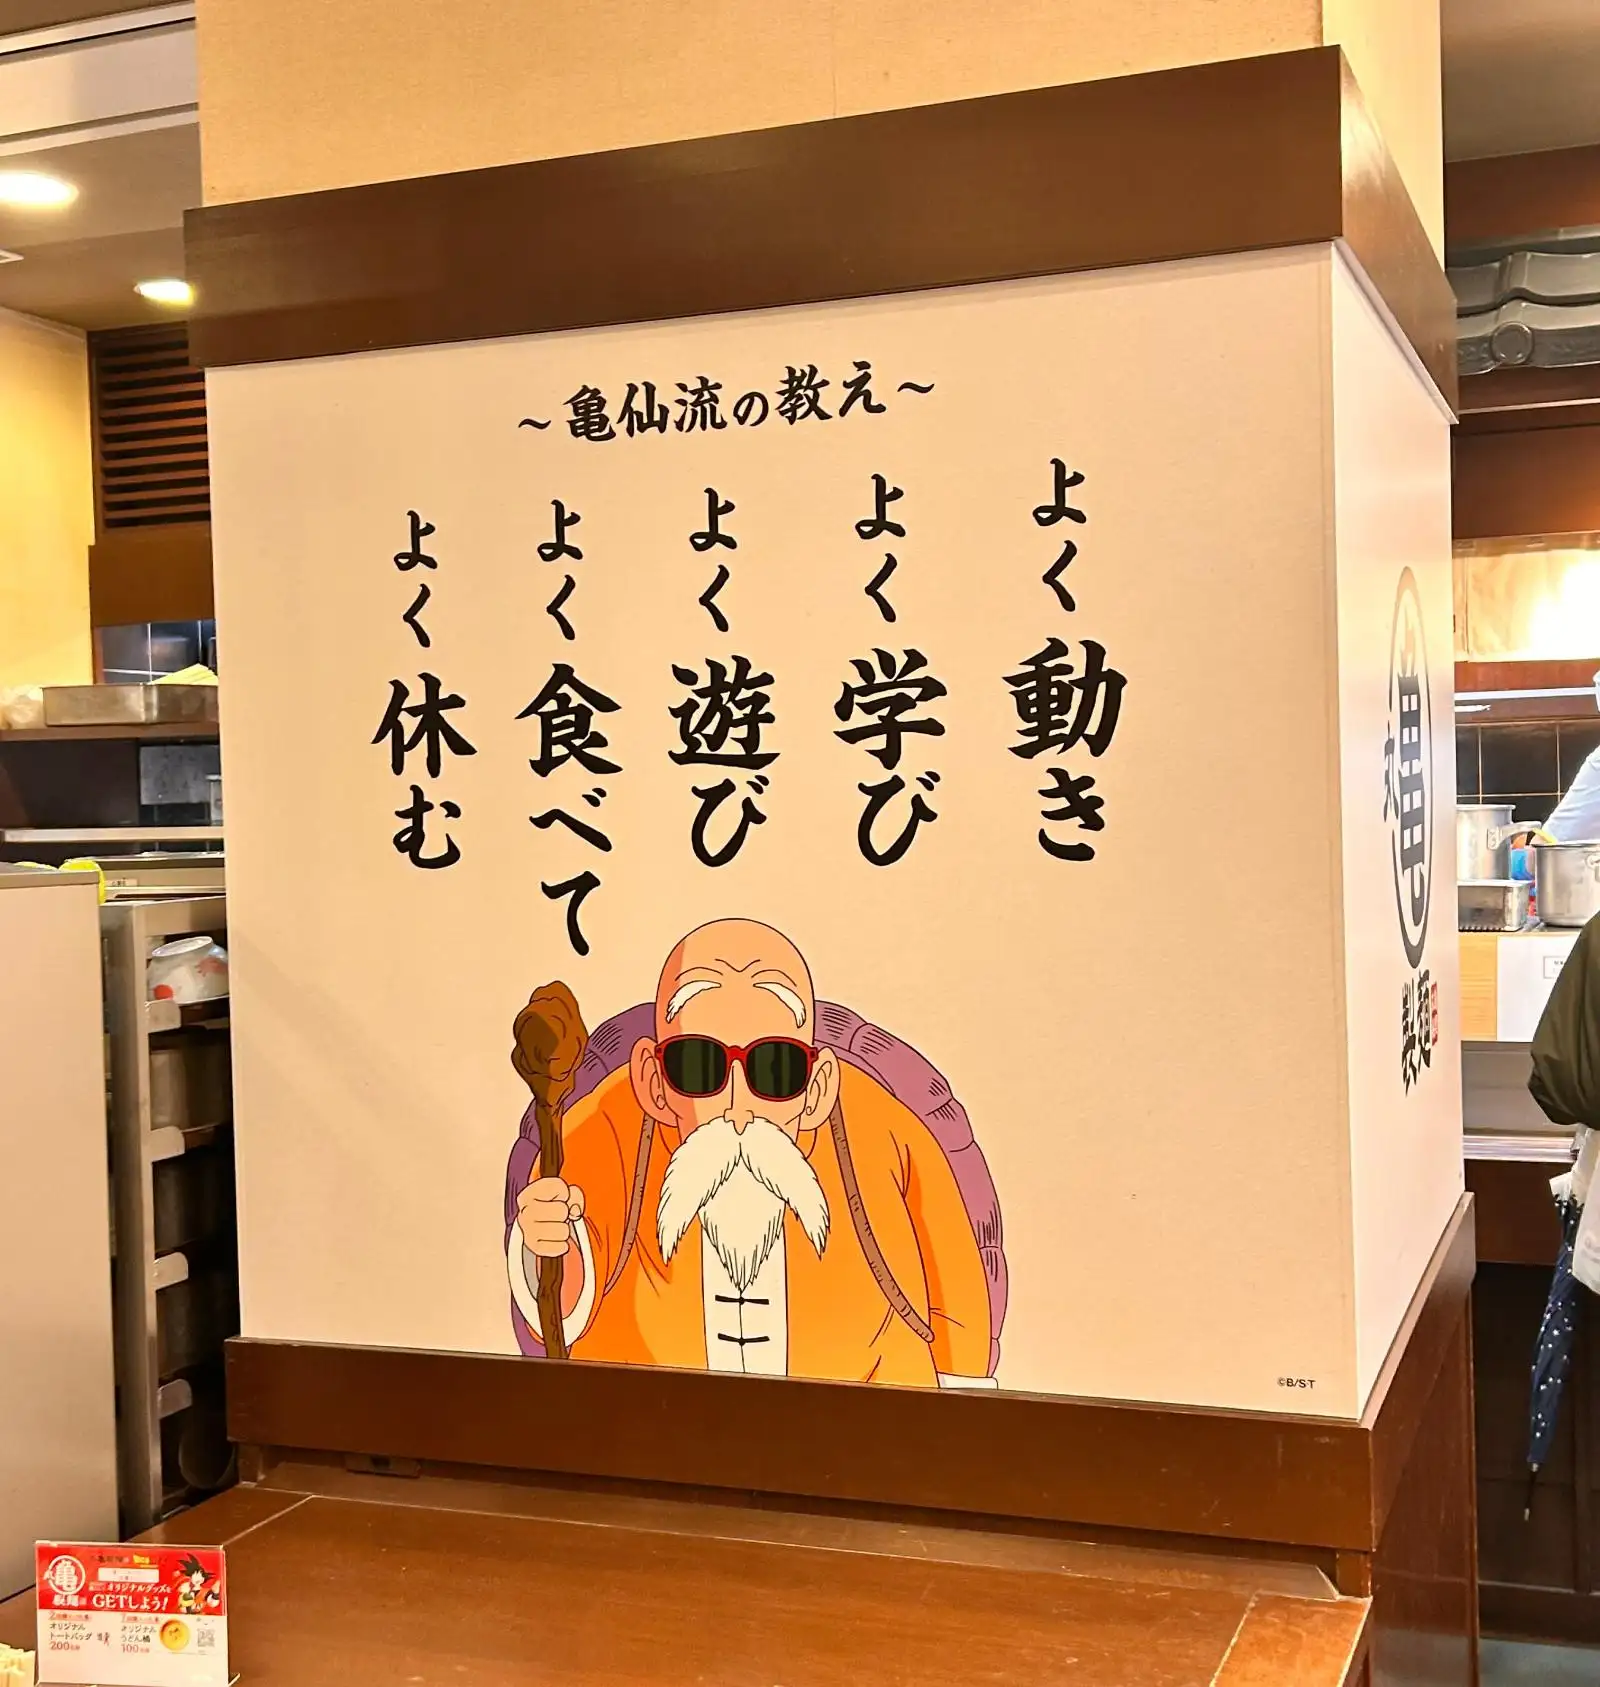 ～亀仙流の教え～
よく動き
よく学び
よく遊び
よく食べて
よく休む
©B/S・T
亀
製麺
亀
製麺
オリジナルグッズを
GETしよう!
オリジナル
トートバッグ
200
オリジナル
うどん桶
100